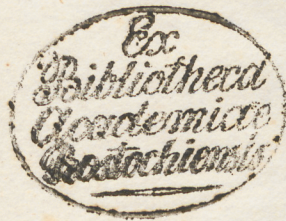 Ex
Bibliotheca
Academicae
Rostochiensis